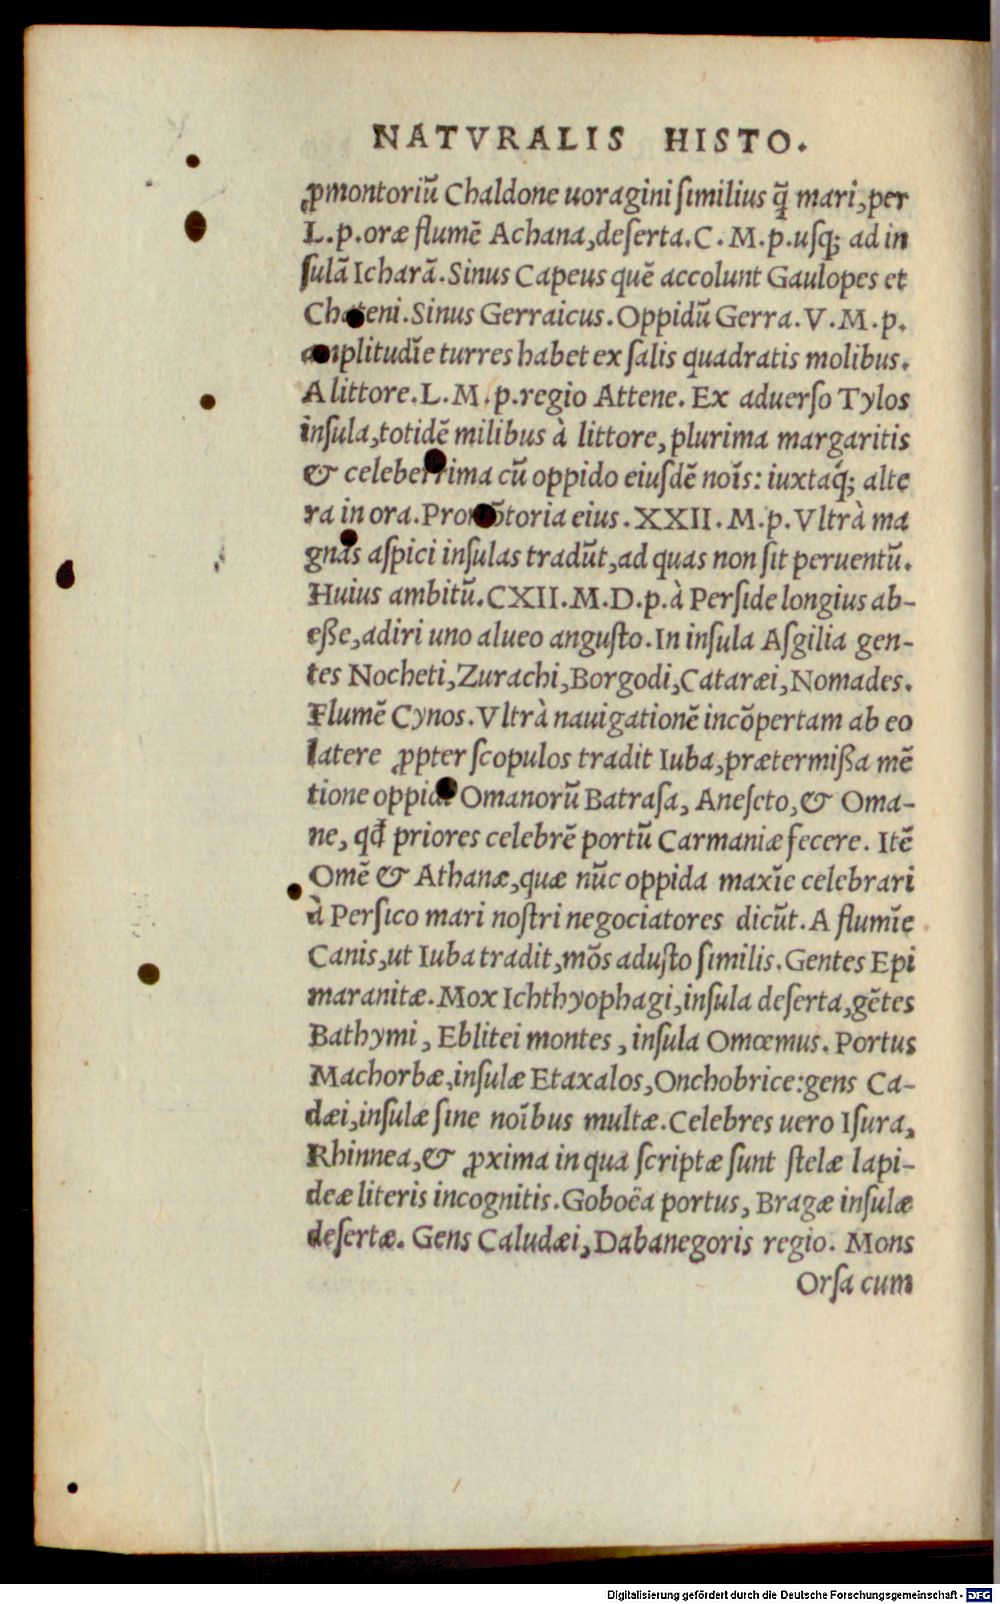 NATVRALIS HISTO.
ꝓmontoriũ Chaldone uoragini ſimilius q̃ mari, per
L. p. oræ flumẽ Achana, deſerta. C. M. p. uſq; ad in
ſulã Icharã. Sinus Capeus quẽ accolunt Gaulopes et
Chateni. Sinus Gerraicus. Oppidũ Gerra. V. M. p.
amplitudĩe turres habet ex ſalis quadratis molibus.
A littore. L. M. p. regio Attene. Ex aduerſo Tylos
inſula, totidẽ milibus à littore, plurima margaritis
& celeberrima cũ oppido eiuſdẽ noĩs: iuxtaq́; alte
ra in ora. Promõtoria eius. XXII. M. p. Vltrà ma
gnas aſpici inſulas tradũt, ad quas non ſit peruentũ.
Huius ambitũ. CXII. M. D. p. à Perſide longius ab-
eße, adiri uno alueo anguſto. In inſula Aſgilia gen-
tes Nocheti, Zurachi, Borgodi, Cataræi, Nomades.
Flumẽ Cynos. Vltrà nauigationẽ incõpertam ab eo
latere ꝓpter ſcopulos tradit Iuba, prætermißa mẽ
tione oppidi Omanorũ Batraſa, Aneſcto, & Oma-
ne, qď priores celebrẽ portũ Carmaniæ fecere. Itẽ
Omẽ & Athanæ, quæ nũc oppida maxĩe celebrari
à Perſico mari noſtri negociatores dicũt. A flumĩe
Canis, ut Iuba tradit, mõs aduſto ſimilis. Gentes Epi
maranitæ. Mox Ichthyophagi, inſula deſerta, gẽtes
Bathymi, Eblitei montes, inſula Omœmus. Portus
Machorbæ, inſulæ Etaxalos, Onchobrice: gens Ca-
dæi, inſulæ ſine noĩbus multæ. Celebres uero Iſura,
Rhinnea, & ꝓxima in qua ſcriptæ ſunt ſtelæ lapi-
deæ literis incognitis. Goboëa portus, Bragæ inſulæ
deſertæ. Gens Caludæi, Dabanegoris regio. Mons
Orſa cum
Digitalisierung gefördert durch die Deutsche Forschungsgemeinschaft - DFG